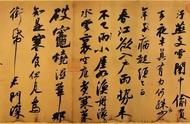 汙燕支雪闇中偷負
去夜半真有力何殊少
年病起頭已白
春江欲入戶雨勢來
不已雨小屋如漁舟濛濛
水雲裏空庖煮寒菜
破竈燒濕葦那
知是寒食但見烏
銜帋君門深